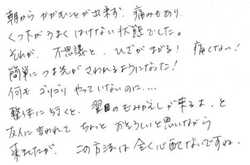 朝から かがむことが出来ず、痛みもあり
くつ下がうまく はけない状態でした。
それが、不思議と、ひざがまがる! 痛くない!
簡単につま先が さわれるようになった!
何も ゴリゴリ やっていないのに…
整体に行くと、翌日のもみかえしが来るよ、と
友人に言われて ちょっと おそろしいと思いながら
来たが、 この方法は 全く心配ないですね